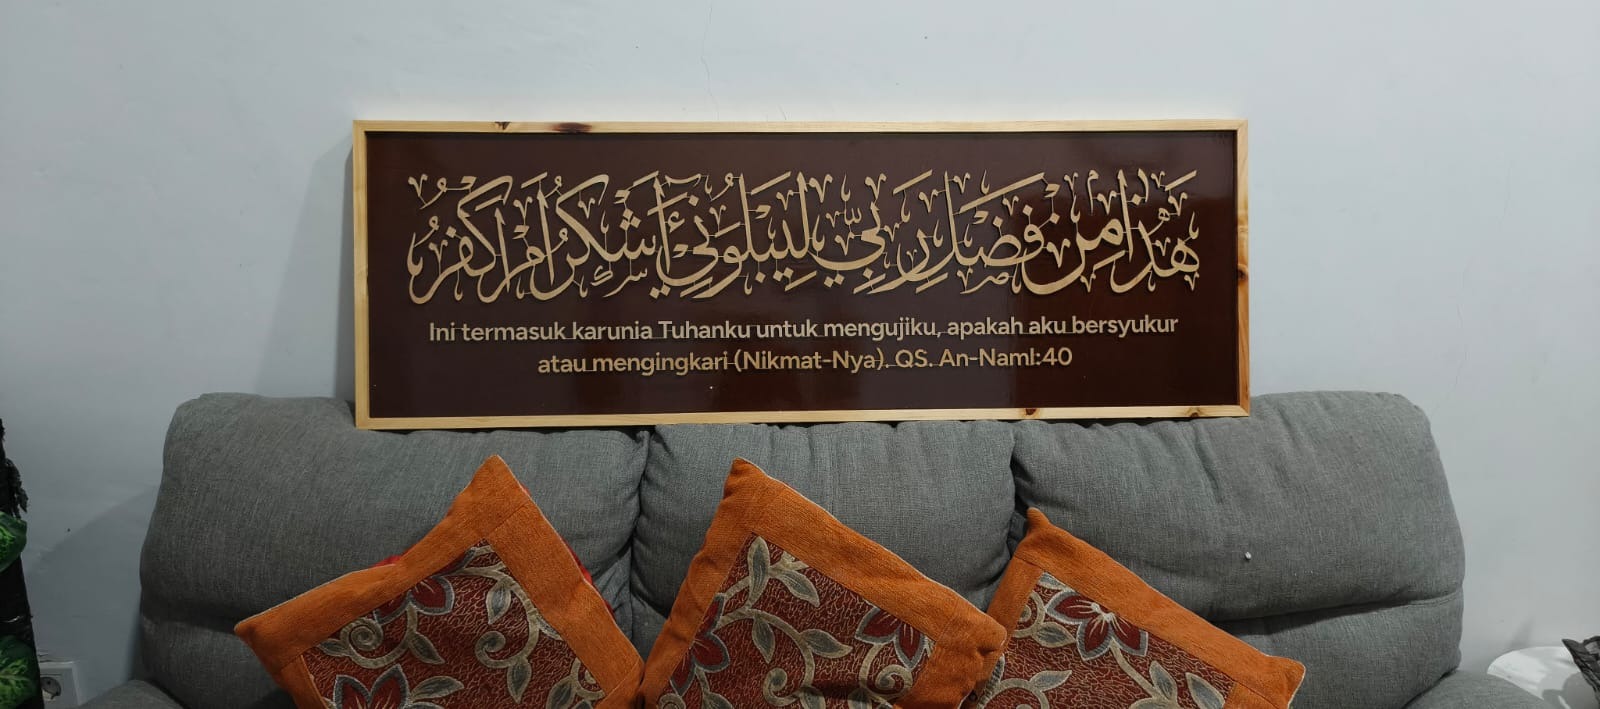 هَٰذَا مِنْ فَضْلِ رَبِّي لِيَبْلُوَنِي أَأَشْكُرُ أَمْ أَكْفُرُ
Ini termasuk karunia Tuhanku untuk mengujiku, apakah aku bersyukur
atau mengingkari (Nikmat-Nya). QS. An-Naml:40